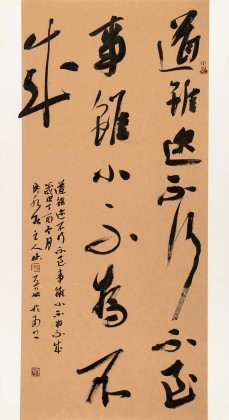 道雖迩不行不至
事雖小不為不
成
道雖迩不行不至事雖小不為不成
歲次丁酉月
主人